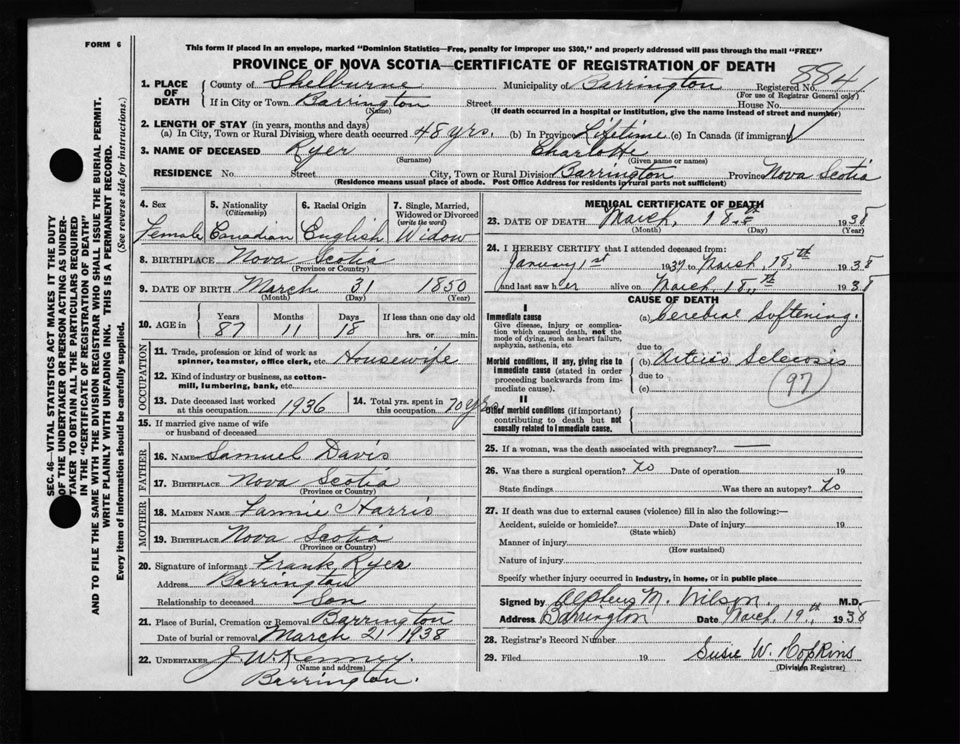 FORM 6
This form if placed in an envelope, marked "Dominion Statistics—Free, penalty for improper use $300," and properly addressed will pass through the mail "FREE"
PROVINCE OF NOVA SCOTIA—CERTIFICATE OF REGISTRATION OF DEATH
884
1. PLACE OF DEATH County of Shelburne Municipality of Barrington Registered No.
(For use of Registrar General only)
If in City or Town Barrington Street House No.
(Name) (If death occurred in a hospital or institution, give the name instead of street and number)
2. LENGTH OF STAY (in years, months and days)
(a) In City, Town or Rural Division where death occurred 48 yrs. (b) In Province Lifetime (c) In Canada (if immigrant)
3. NAME OF DECEASED Ryer Charlotte
(Surname) (Given name or names)
RESIDENCE No. Street City, Town or Rural Division Barrington Province Nova Scotia
(Residence means usual place of abode. Post Office Address for residents in rural parts not sufficient)
4. Sex 5. Nationality (Citizenship) 6. Racial Origin 7. Single, Married, Widowed or Divorced (write the word)
Female Canadian English Widow
8. BIRTHPLACE Nova Scotia
(Province or Country)
9. DATE OF BIRTH March 31 1850
(Month) (Day) (Year)
10. AGE in Years Months Days If less than one day old
87 11 18 hrs. or min.
OCCUPATION
11. Trade, profession or kind of work as spinner, teamster, office clerk, etc. Housewife
12. Kind of industry or business, as cotton-mill, lumbering, bank, etc.
13. Date deceased last worked at this occupation 1936 14. Total yrs. spent in this occupation 70 yrs
15. If married give name of wife or husband of deceased
FATHER
16. NAME Samuel Davis
17. BIRTHPLACE Nova Scotia
(Province or Country)
MOTHER
18. MAIDEN NAME Fannie Harris
19. BIRTHPLACE Nova Scotia
(Province or Country)
20. Signature of informant Frank Ryer
Address Barrington
Relationship to deceased Son
21. Place of Burial, Cremation or Removal Barrington
Date of burial or removal March 21 1938
22. UNDERTAKER J. W. Kenney.
(Name and address)
Barrington.
MEDICAL CERTIFICATE OF DEATH
23. DATE OF DEATH March, 18th 1938
(Month) (Day) (Year)
24. I HEREBY CERTIFY that I attended deceased from:
January 1st 1937 to March, 18,th 1938
and last saw her alive on March, 18,th 1938
CAUSE OF DEATH
I
Immediate cause (a) Cerebral Softening.
Give disease, injury or complication which caused death, not the mode of dying, such as heart failure, asphyxia, asthenia, etc.
due to
Morbid conditions, if any, giving rise to immediate cause (stated in order proceeding backwards from immediate cause). (b) Arterio Sclerosis
due to
(c)
97
II
Other morbid conditions (if important) contributing to death but not causally related to immediate cause.
25. If a woman, was the death associated with pregnancy? —
26. Was there a surgical operation? No Date of operation 19
State findings Was there an autopsy? No
27. If death was due to external causes (violence) fill in also the following:—
Accident, suicide or homicide? Date of injury 19
(State which)
Manner of injury
(How sustained)
Nature of injury
Specify whether injury occurred in industry, in home, or in public place
Signed by Alpheus M. Wilson. M.D.
Address Barrington Date March, 19,th 1938
28. Registrar's Record Number
29. Filed 19 Susie W. Hopkins
(Division Registrar)
SEC. 46—VITAL STATISTICS ACT MAKES IT THE DUTY
OF THE UNDERTAKER OR PERSON ACTING AS UNDER-
TAKER TO OBTAIN ALL THE PARTICULARS REQUIRED
IN THE "CERTIFICATE OF REGISTRATION OF DEATH"
AND TO FILE THE SAME WITH THE DIVISION REGISTRAR WHO SHALL ISSUE THE BURIAL PERMIT.
WRITE PLAINLY WITH UNFADING INK. THIS IS A PERMANENT RECORD.
Every item of information should be carefully supplied. (See reverse side for instructions.)